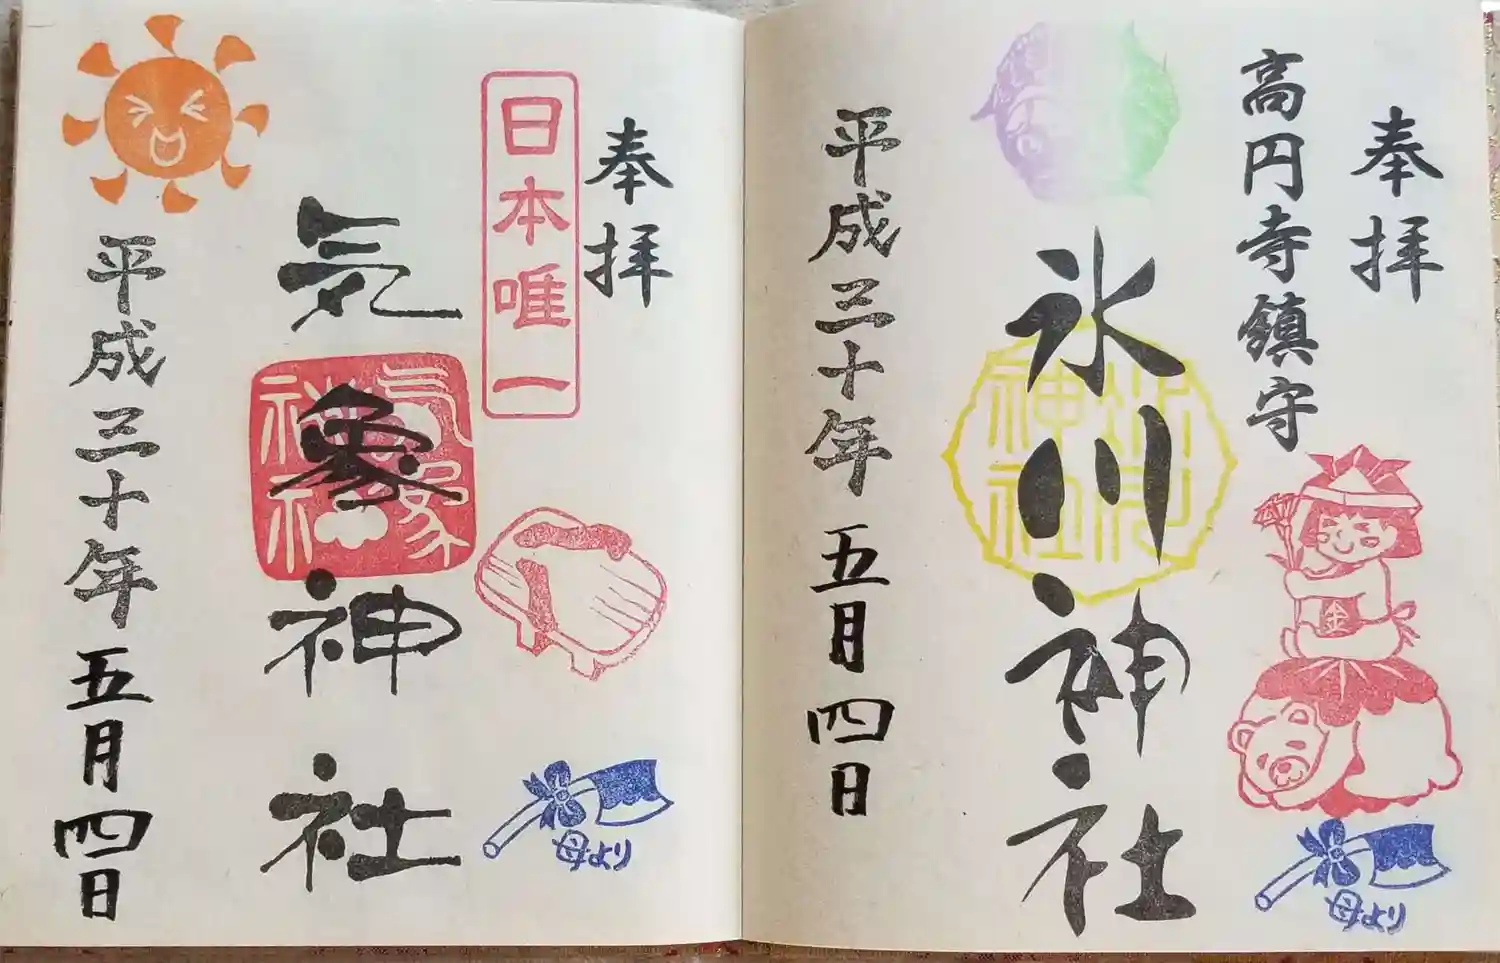 奉拝
高円寺鎮守
氷川神社
氷川神社
金
母より
平成三十年五月四日
奉拝
日本唯一
気象神社
気象神社
母より
平成三十年五月四日